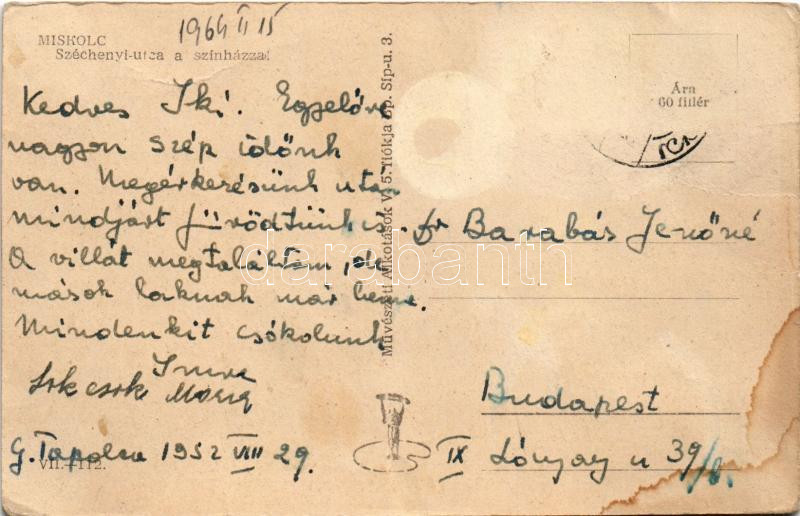 1964 II 15
MISKOLC
Széchenyi-utca a színházzal
Kedves Iki! Egyelőre
nagyon szép időnk
van. Megérkezésünk után
mindjárt fürödtünk is.
A villát megtaláltam, de
mások laknak már benne.
Mindenkit csókolunk
Imre
Sok csók
G. Tapolca 1952 VIII 29.
VII.–112.
Művészeti Alkotások V. 5. fiókja Bp. Síp-u. 3.
Ára
60 fillér
dr Barabás Jenőné
Budapest
IX Lónyay u 39/b.
darabanth